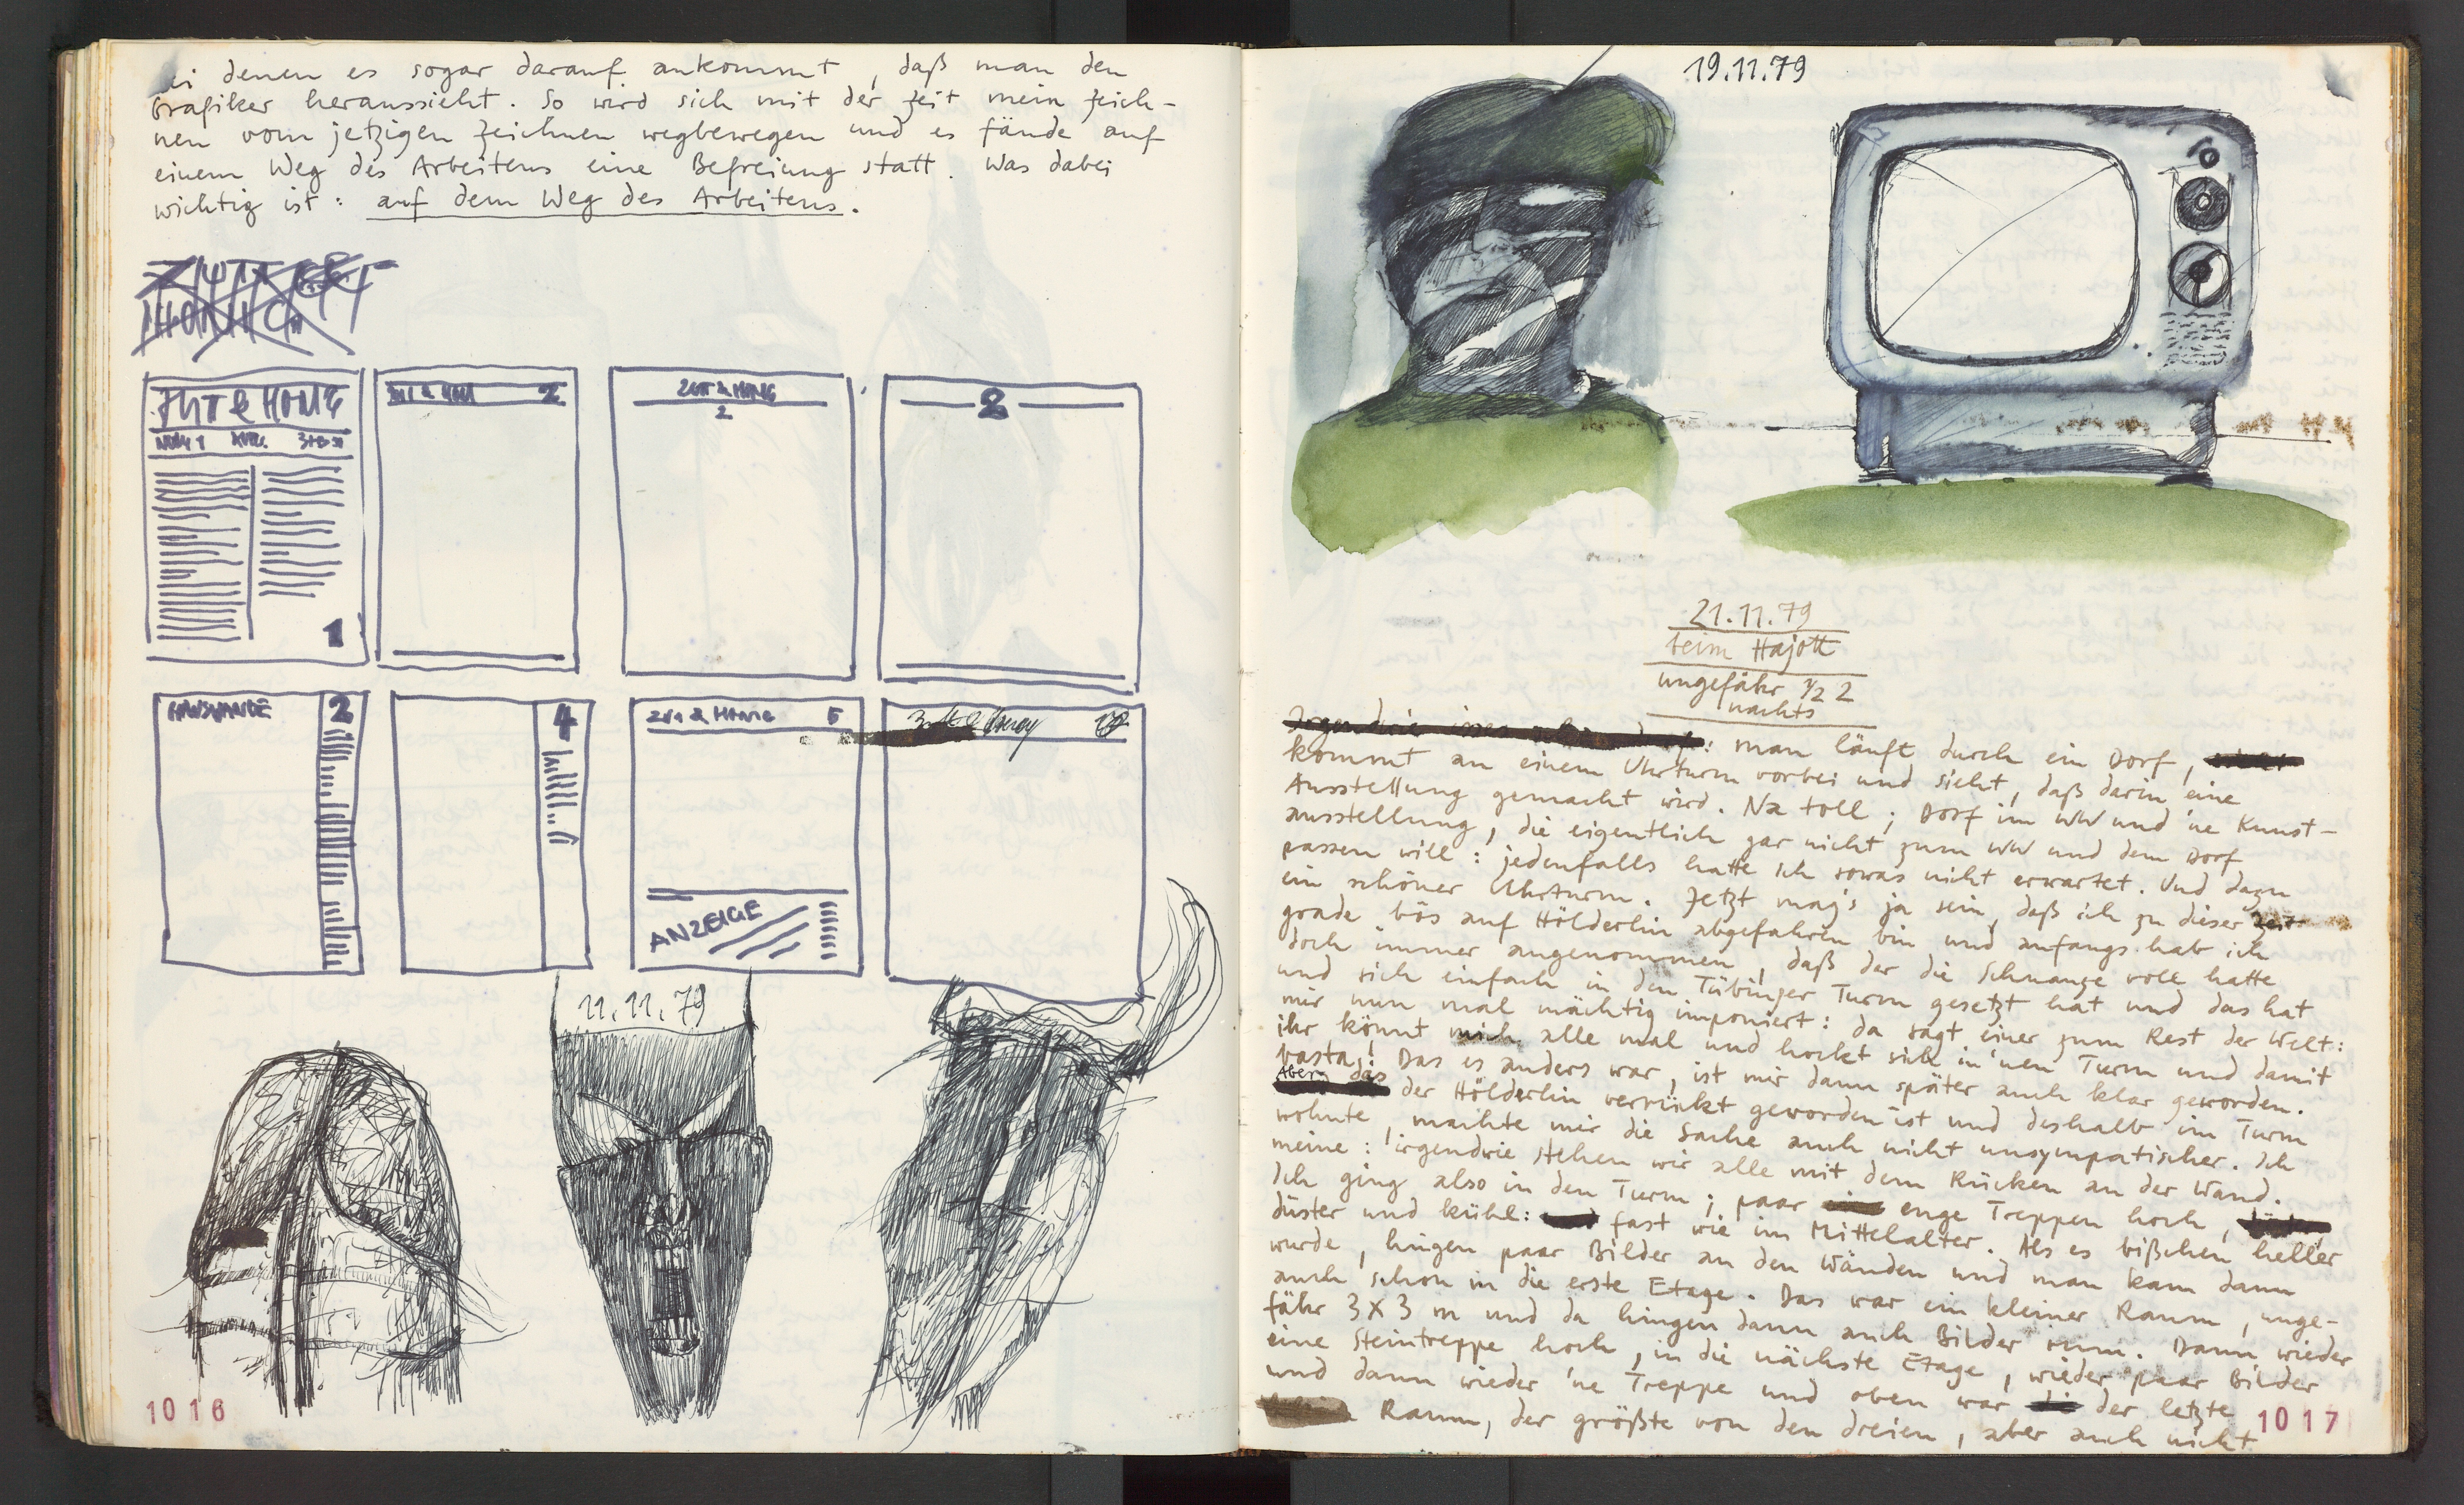 ei denen es sogar darauf ankommt, daß man den
Grafiker heraussieht. So wird sich mit der Zeit mein Zeich-
nen vom jetzigen Zeichnen wegbewegen und es fände auf
einem Weg des Arbeitens eine Befreiung statt. Was dabei
wichtig ist: auf dem Weg des Arbeitens.
ZEIT & HOME
1
2
2
2
2
4
ZEIT & HOME 6
ANZEIGE
11.11.79
1016
19.11.79
21.11.79
beim Hajott
ungefähr 1/2 2
nachts
: man läuft durch ein Dorf,
kommt an einem Uhrturm vorbei und sieht, daß darin eine
Ausstellung gemacht wird. Na toll; Dorf im WW und 'ne Kunst-
ausstellung, die eigentlich gar nicht zum WW und dem Dorf
passen will: jedenfalls hatte ich sowas nicht erwartet. Und dazu
ein schöner Uhrturm. Jetzt mag's ja sein, daß ich zu dieser Zeit
grade bös auf Hölderlin abgefahren bin und anfangs hab ich
doch immer angenommen, daß der die Schnauze voll hatte
und sich einfach in den Tübinger Turm gesetzt hat und das hat
mir nun mal mächtig imponiert: da sagt einer zum Rest der Welt:
ihr könnt mich alle mal und hockt sich in 'nen Turm und damit
basta! Das es anders war, ist mir dann später auch klar geworden.
Aber das der Hölderlin verrückt geworden ist und deshalb im Turm
wohnte, machte mir die Sache auch nicht unsympatischer. Ich
meine: irgendwie stehen wir alle mit dem Rücken an der Wand.
Ich ging also in den Turm; paar enge Treppen hoch,
düster und kühl: fast wie im Mittelalter. Als es bißchen heller
wurde, hingen paar Bilder an den Wänden und man kam dann
auch schon in die erste Etage. Das war ein kleiner Raum, unge-
fähr 3x3 m und da hingen dann auch Bilder rum. Dann wieder
eine Steintreppe hoch, in die nächste Etage, wieder paar Bilder
und dann wieder 'ne Treppe und oben war der letzte
Raum, der größte von den dreien, aber auch nicht
1017